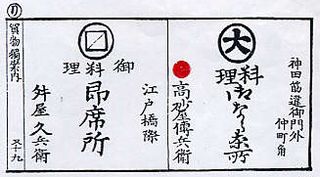 神田筋違御門外
仲町角
大
料理
御なら茶所
高砂屋傳兵衛
江戸橋際
御料理
即席所
舛屋久兵衛
買物獨案内